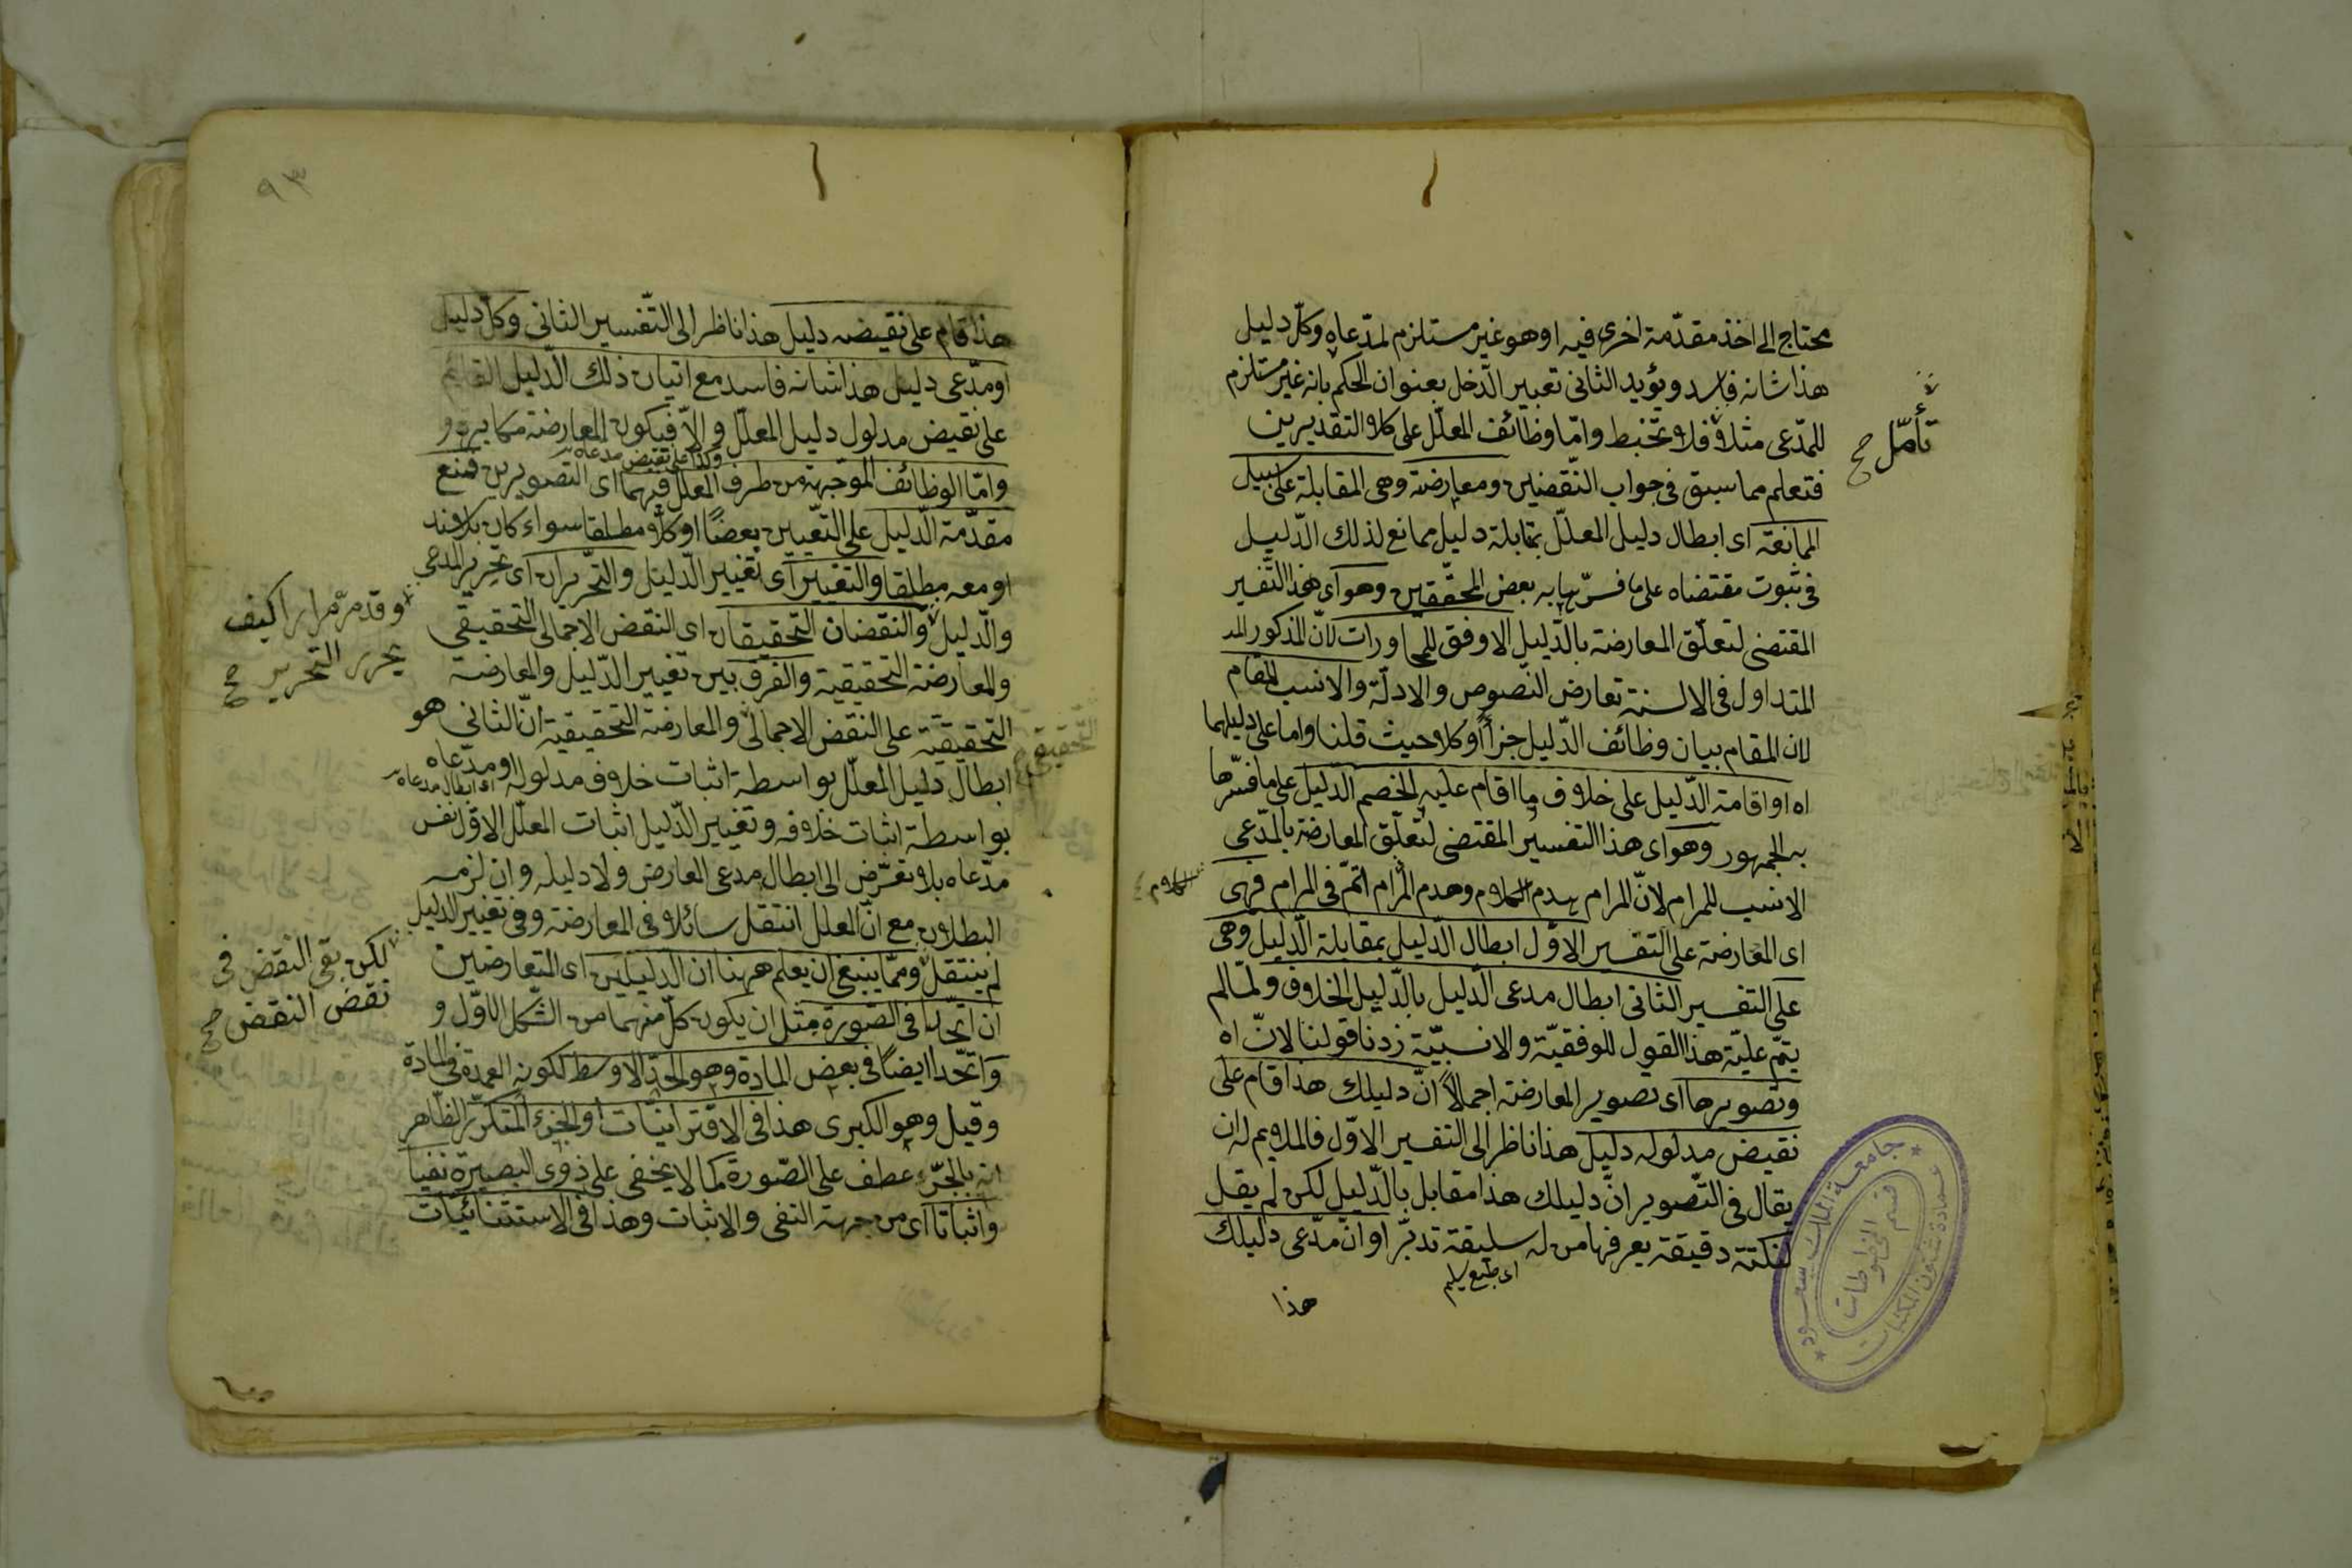 محتاج الى اخذ مقدّمة اخرى فيه او هو غير مستلزم لمدّعاه وكلّ دليل
هذا شانه فاسد ويؤيد الثانى تعبير الدّخل بعنوان الحكم بانه غير مستلزم
للمدّعى مثلا فلا تخبط وامّا وظائف المعلّل على كلا التقديرين
تأمّل صح
فتعلم مما سبق فى جواب النّقضين ومعارضة وهى المقابلة على سبيل
الممانعة اى ابطال دليل المعلّل بمقابلة دليل ممانع لذلك الدّليل
فى ثبوت مقتضاه على ما فسرّها به بعض المحقّقين وهو اى هذا التّفسير
المقتضى لتعلّق المعارضة بالدّليل الاوفق للمحاورات لانّ المذكور
المتداول فى الالسنة تعارض النّصوص والادلّة والانسب للمقام
لان المقام بيان وظائف الدّليل جزأً او كلا حيث قلنا واما على دليلهما
اه او اقامة الدّليل على خلاف ما اقام عليه الخصم الدّليل على ما فسّرها
به الجمهور وهو اى هذا التفسير المقتضى لتعلّق المعارضة بالمدّعى
الانسب للمرام لانّ المرام هدم الكلام وهدم المرام اتمّ فى المرام فهى
الكلام
اى المعارضة على التفسير الاوّل ابطال الدّليل بمقابلة الدّليل وهى
على التفسير الثانى ابطال مدعى الدّليل بالدّليل الخلاف ولمّا لم
يتمّ عليّة هذا القول للوفقيّة والانسبيّة زدنا قولنا لانّ اه
وتصويرها اى تصوير المعارضة اجمالاً انّ دليلك هذا قام على
نقيض مدلوله دليل هذا ناظر الى التفسير الاوّل فالملايم له ان
يقال فى التّصوير انّ دليلك هذا مقابل بالدّليل لكن لم يقل
لنكتة دقيقة يعرفها من له سليقة تدبّر او انّ مدّعى دليلك
اى طبع سليم
هذا
٩٣
هذا قام على نقيضه دليل هذا ناظر الى التّفسير الثانى وكلّ دليل
او مدّعى دليل هذا شانه فاسد مع اتيان ذلك الدّليل القائم
على نقيض مدلول دليل المعلّل والاّ فيكون المعارضة مكابرة و
وكذا على نقيض مدعاه
وامّا الوظائف الموجّهة من طرف المعلّل فيهما اى التصويرين فمنع
مقدّمة الدّليل على التعيين بعضًا او كلاّ مطلقا سواء كان بلا سند
او معه مطلقا والتغيير اى تغيير الدّليل والتّحريران اى تحرير المدعى
وقد مرّ مرارا كيف
يحرر التحرير صح
والدّليل والنقضان التّحقيقان اى النقض الاجمالى التحقيقى
والمعارضة التحقيقية والفرق بين تغيير الدّليل والمعارضة
التحقيقية على النقض الاجمالى والمعارضة التحقيقية انّ الثانى هو
التّحقيقى
ابطال دليل المعلّل بواسطة اثبات خلاف مدلوله او مدّعاه
اى ابطال مدعاه
بواسطة اثبات خلافه وتغيير الدّليل اثبات المعلّل الاوّل نفس
مدّعاه بلا تعرّض الى ابطال مدعى المعارض ولا دليله وان لزمه
البطلان مع انّ المعلل انتقل سائلا فى المعارضة وفى تغيير الدليل
لم ينتقل وممّا ينبغى ان يعلم ههنا ان الدليلين اى المتعارضين
لكن بقى النقض فى
نقض النقض صح
ان اتّحدا فى الصّورة مثل ان يكون كلّ منهما من الشّكل الاوّل و
واتّحدا ايضًا فى بعض المادة وهو الحدّ الاوسط لكونه العمدة فى المادة
وقيل وهو الكبرى هذا فى الاقترانيّات او الجزء المتكرّر الظّاهر
انه بالجرّ عطف على الصّورة كما لا يخفى على ذوى البصيرة نفيا
واثباتا اى من جهة النفى والاثبات وهذا فى الاستثنائيّات
جامعة الملك سعود
عمادة شؤون المكتبات
قسم المخطوطات